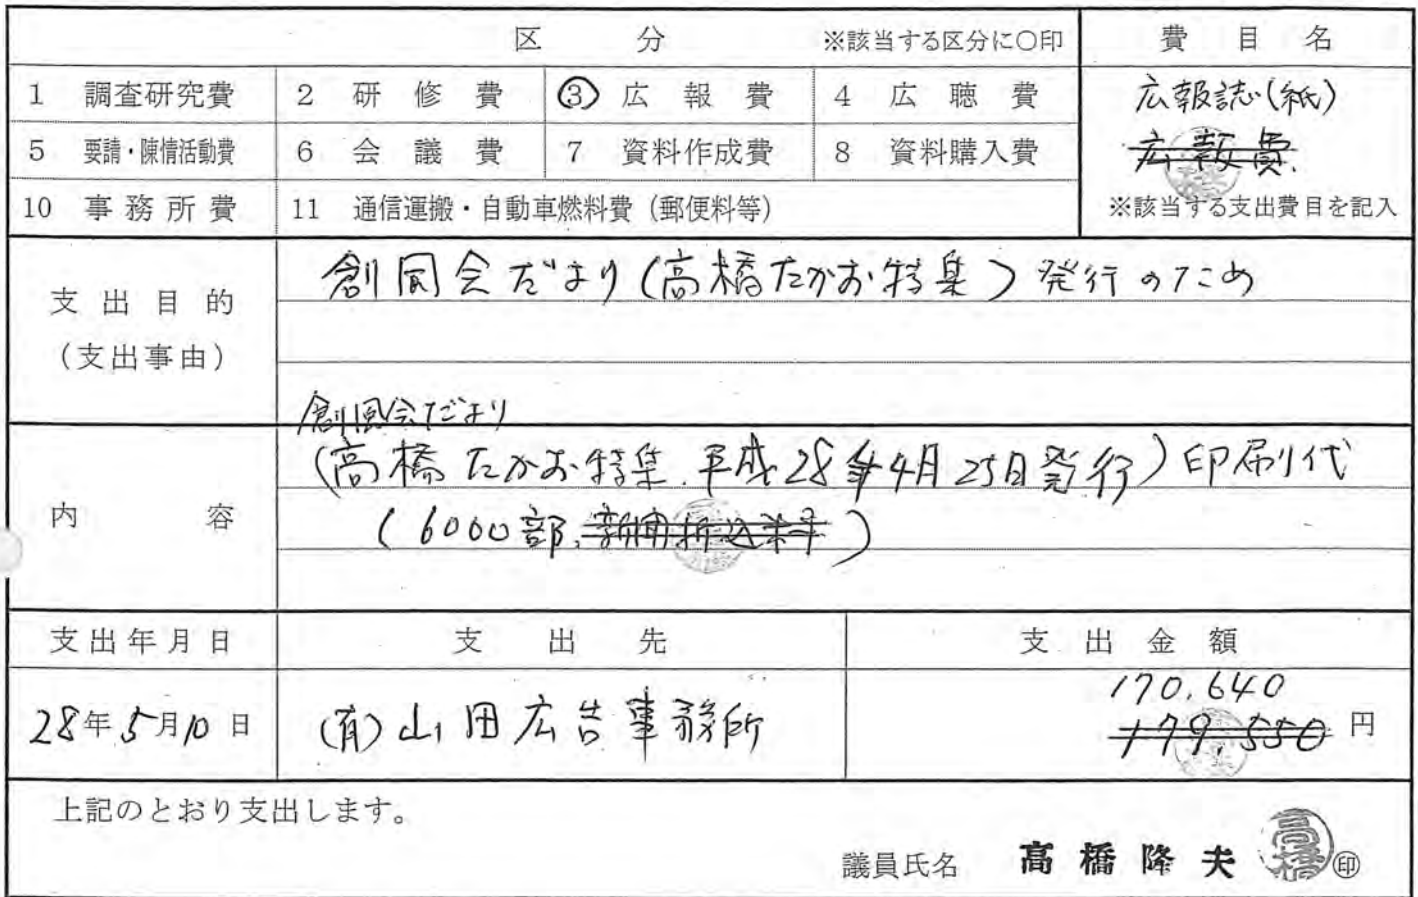 区 分 ※該当する区分に○印 費 目 名
1 調査研究費 2 研 修 費 ③ 広 報 費 4 広 聴 費 広報誌(紙)
5 要請・陳情活動費 6 会 議 費 7 資料作成費 8 資料購入費 広報費
10 事務所費 11 通信運搬・自動車燃料費(郵便料等) ※該当する支出費目を記入
支出目的 創風会だより(高橋たかお特集)発行のため
(支出事由)
創風会だより
(高橋たかお特集.平成28年4月25日発行)印刷代
内 容 (6000部、新聞折込料)
支出年月日 支 出 先 支 出 金 額
170,640
28年5月10日 (有)山田広告事務所 179,550円
上記のとおり支出します。
議員氏名 高橋降夫 高橋 ㊞